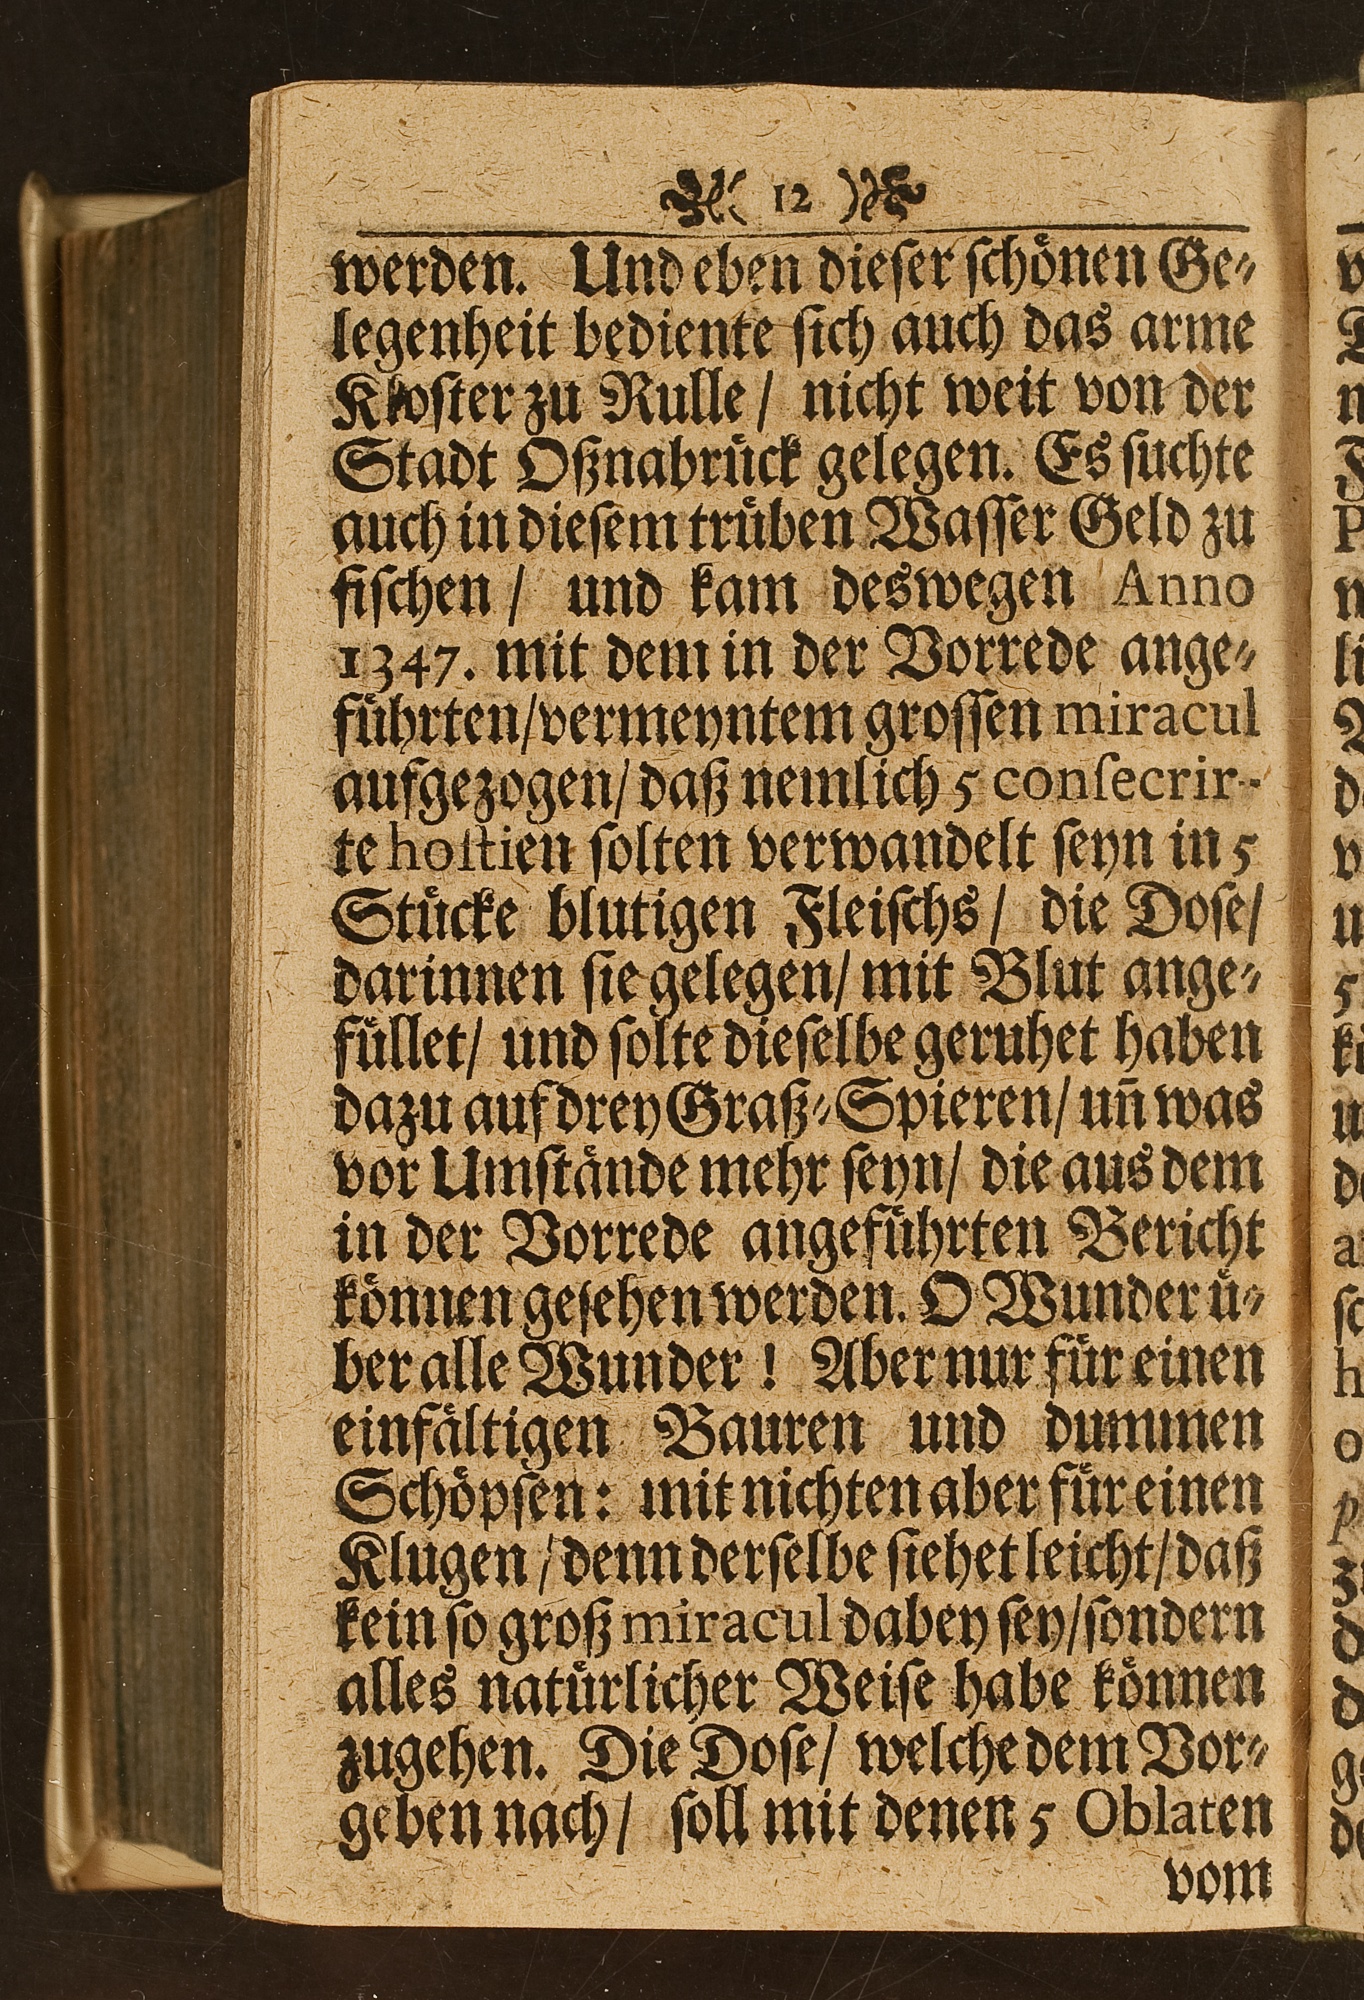 12
werden. Und eben dieſer ſchoͤnen Ge⸗
legenheit bediente ſich auch das arme
Kloſter zu Rulle / nicht weit von der
Stadt Oßnabruͤck gelegen. Es ſuchte
auch in dieſem truͤben Waſſer Geld zu
fiſchen / und kam deswegen Anno
1347. mit dem in der Vorrede ange⸗
fuͤhrten/ vermeyntem groſſen miracul
aufgezogen/ daß nemlich 5 conſecrir-
te hoſtien ſolten verwandelt ſeyn in 5
Stuͤcke blutigen Fleiſchs/ die Doſe/
darinnen ſie gelegen/ mit Blut ange⸗
fuͤllet/ und ſolte dieſelbe geruhet haben
dazu auf drey Graß⸗Spieren/ un̄ was
vor Umſtaͤnde mehr ſeyn/ die aus dem
in der Vorrede angefuͤhrten Bericht
koͤnnen geſehen werden. O Wunder uͤ⸗
ber alle Wunder! Aber nur fuͤr einen
einfaͤltigen Bauren und dummen
Schoͤpſen: mit nichten aber fuͤr einen
Klugen / denn derſelbe ſiehet leicht/ daß
kein ſo groß miracul dabey ſey/ ſondern
alles natuͤrlicher Weiſe habe koͤnnen
zugehen. Die Doſe/ welche dem Vor⸗
geben nach/ ſoll mit denen 5 Oblaten
vom